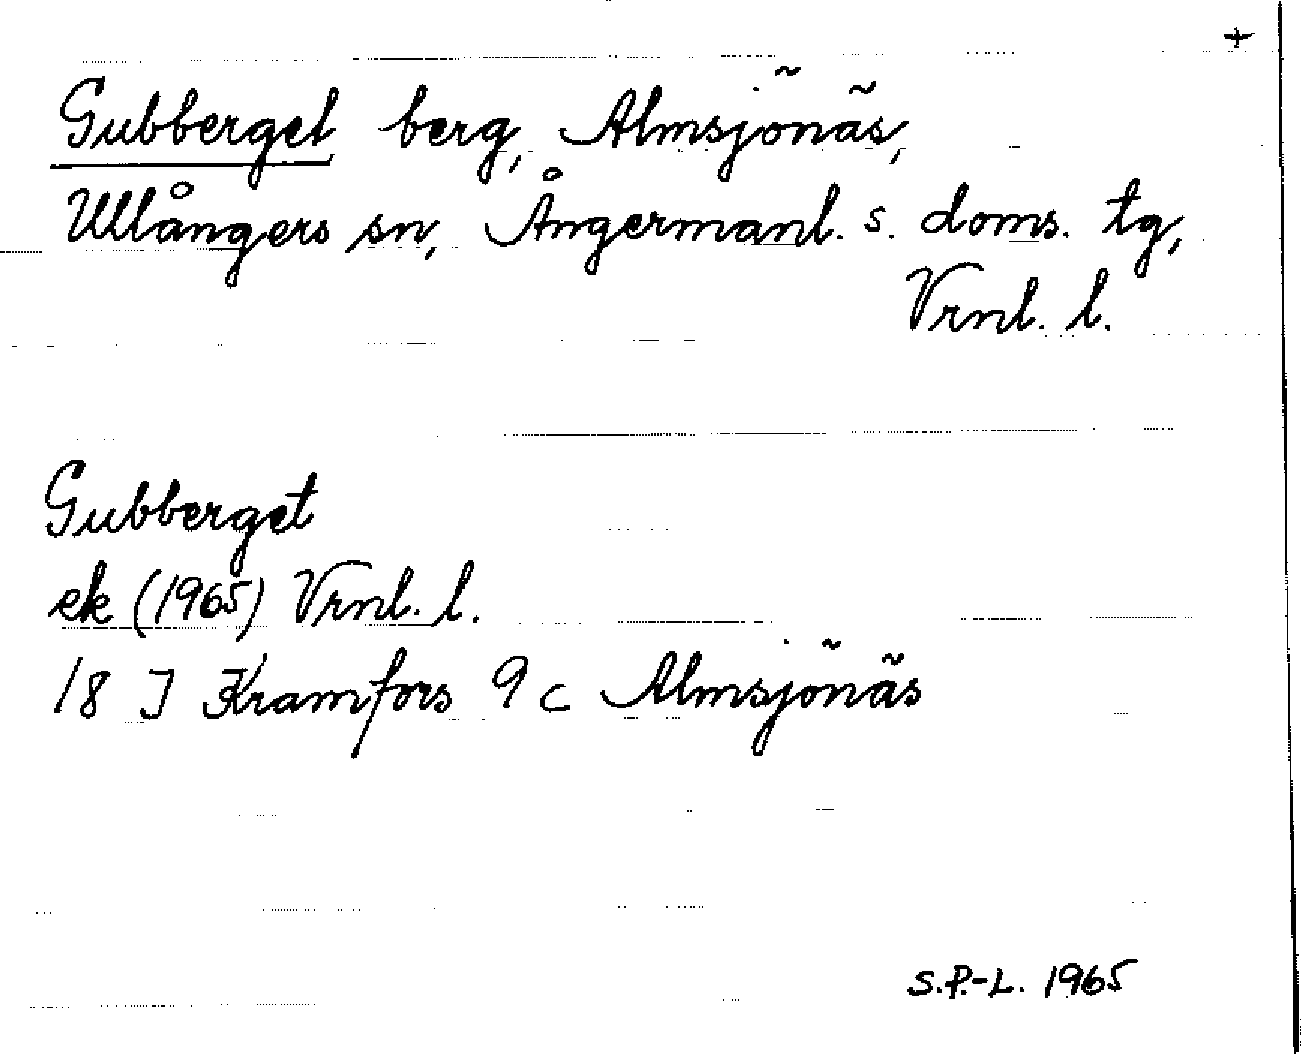 +
Gubberget berg, Almsjönäs,
Ullångers sn, Ångermanl. s. doms. tg,
Vrnl. l.
Gubberget
ek (1965) Vrnl. l.
18 J Kramfors 9 c Almsjönäs
S.P.-L. 1965